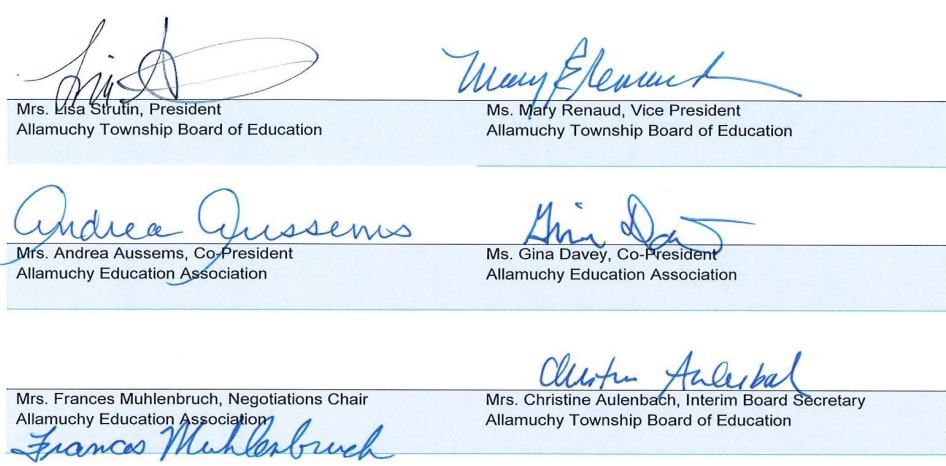 Lisa S
Mary E Renaud
Mrs. Lisa Strutin, President
Allamuchy Township Board of Education
Ms. Mary Renaud, Vice President
Allamuchy Township Board of Education
Andrea Aussems
Gina Davey
Mrs. Andrea Aussems, Co-President
Allamuchy Education Association
Ms. Gina Davey, Co-President
Allamuchy Education Association
Christine Aulenbach
Mrs. Frances Muhlenbruch, Negotiations Chair
Allamuchy Education Association
Frances Muhlenbruch
Mrs. Christine Aulenbach, Interim Board Secretary
Allamuchy Township Board of Education